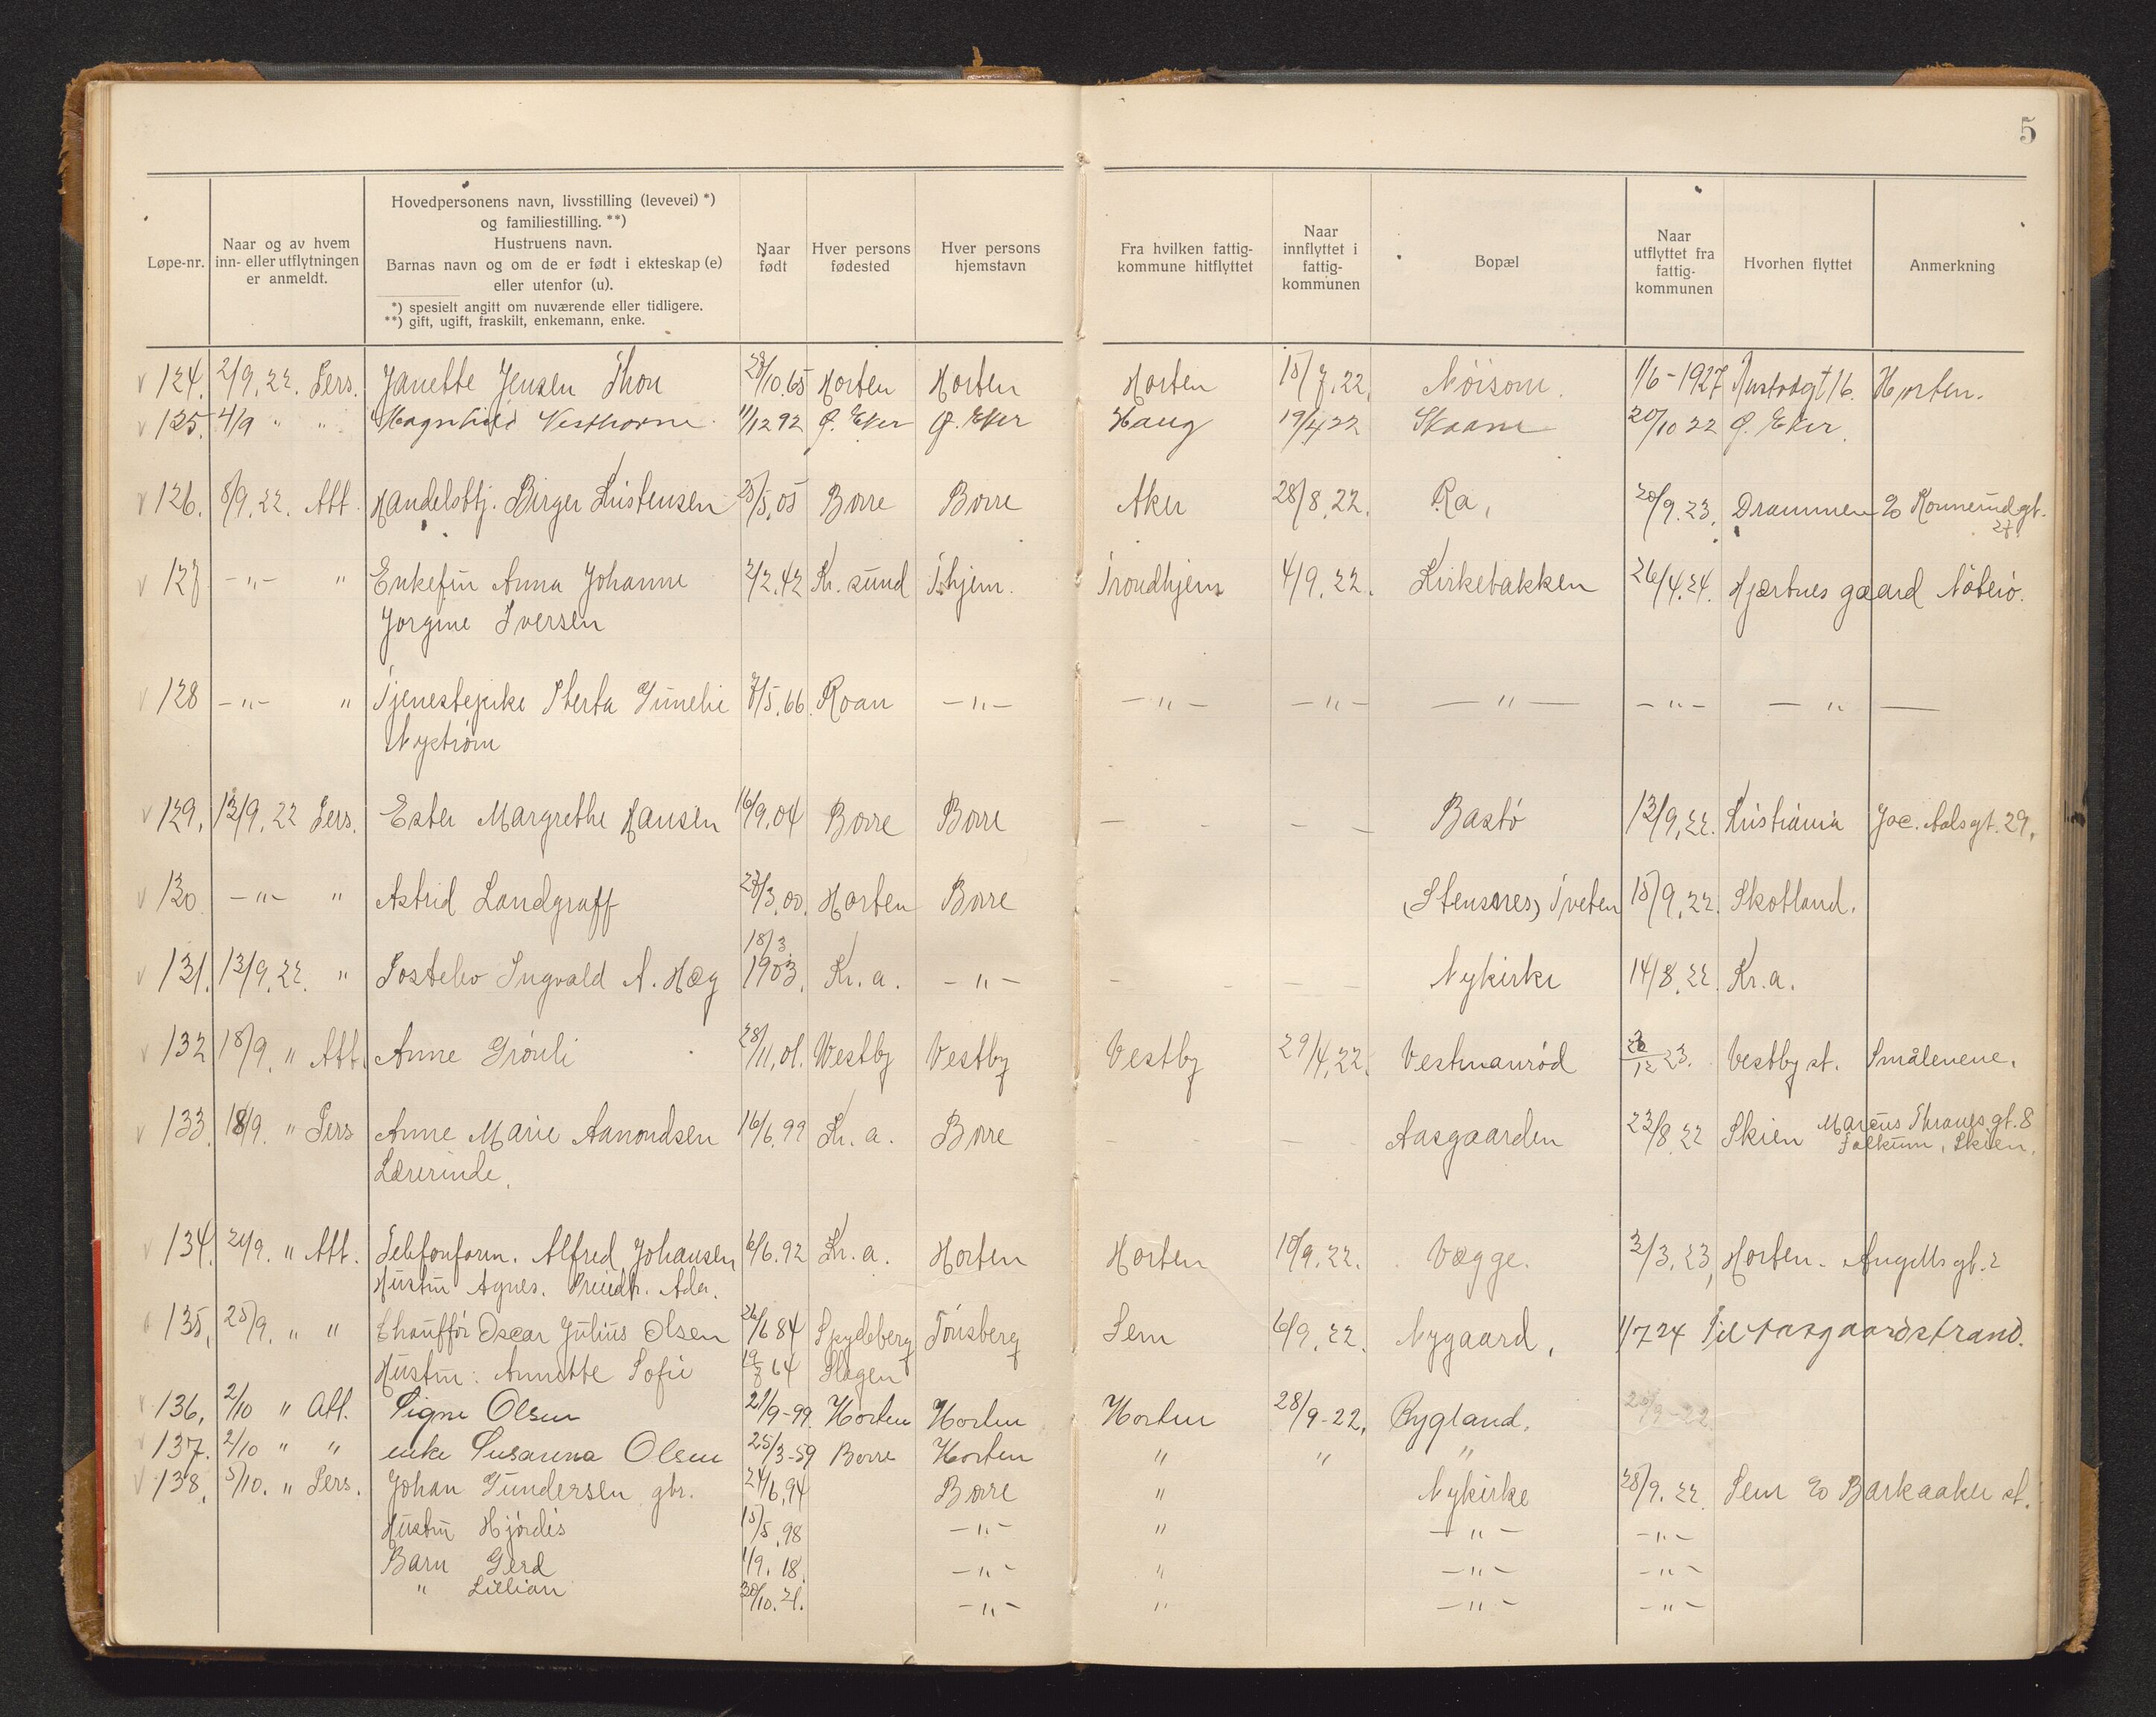 5
Løpe-nr.
Naar og av hvem inn- eller utflytningen er anmeldt.
Hovedpersonens navn, livsstilling (levevei) *)
og familiestilling. **)
Hustruens navn.
Barnas navn og om de er født i ekteskap (e)
eller utenfor (u).
*) spesielt angitt om nuværende eller tidligere.
**) gift, ugift, fraskilt, enkemann, enke.
Naar født
Hver persons fødested
Hver persons hjemstavn
Fra hvilken fattig-kommune hitflyttet
Naar innflyttet i fattig-kommunen
Bopæl
Naar utflyttet fra fattig-kommunen
Hvorhen flyttet
Anmerkning
124. 2/9. 22. Pers. Janette Jensen Thon 23/10.65 Horten Horten Horten 15/7.22. Nöisom. 1/6-1927 16. Horten.
125. 4/9 " " Magnhild Vesthorne 11/12 92 Ø. Eker Ø. Eker Haug 19/4 22 Skaane 20/10 22 Ø. Eker.
126. 8/9. 22. Att. Handelsbtj. Birger Kristensen 25/5.05 Borre Borre Aker 28/8.22. Ra, 20/9.23. Drammen Konnerudgt.
27.
127 -"- " Enkefru Anna Johanne 2/2.42 Kr. sund Thjem. Trondhjem 4/9.22. Kirkebakken 26/4.24. Hjærtnes gaard Nöterö.
Jorgine Iversen
128 -"- " Tjenestepike Gunelie 7/5.66. Roan -"- -"- -"- -"- -"- -"-
Nyström
129. 13/9.22 Pers. Ester Margrethe Hansen 16/9.04 Borre Borre - - - - Bastö 13/9.22. Kristiania Jac. Aalsgt. 29.
130 -"- " Astrid Landgraff 23/3.00. Horten Borre (Stensnes) Tveten 15/9.22. Skotland.
18/3
131. 13/9.22. " Postelev Ingvald A. Hæg 1903. Kr.a. -"- - - - - Nykirke 14/8.22. Kr.a.
132 18/9. " Att. Anne Grönli 28/11.01. Vestby Vestby Vestby 29/4.22. Vestmanröd 23. Vestby st. Smålenene.
133. 18/9. " Pers Anne Marie Aamondsen 16/6.99 Kr.a. Borre - - - Aasgaarden 23/8.22 Skien Marcus Thranes gt. 8
Falkum, Skien.
Lærerinde.
134. 21/9. " Att. Telefonform. Alfred Johansen 6/6.92 Kr.a. Horten Horten 18/9.22. Vægge. 3/3.23, Horten. Angells gt. 2
Hustru Agnes. Ada.
135, 25/9. " " Chaufför Oscar Julius Olsen 26/6 84 Skydeberg Tönsberg Sem 6/9.22. Nygaard, 1/7 24 Til Aasgaardstrand.
Hustru: Annette Sofie 64 Slagen
136, 2/10 " Att. Signe Olsen 21/9-99. Horten Horten Horten 28/9-22, Rygland. 25/9-22.
137. 2/10 " " enke Susanna Olsen 25/3-59 Borre Horten " " "
138, 5/10. " Pers. Johan Gundersen gbr. 24/6.94 Borre " Nykirke 28/9.22. Sem Barkaaker st.
Hustru Hjördis 15/5.98 -"- " -"- -"-
Barn Gerd 1/9.18. -"- " -"- -"-
" Lillian 30/10.21. -"- " -"- -"-